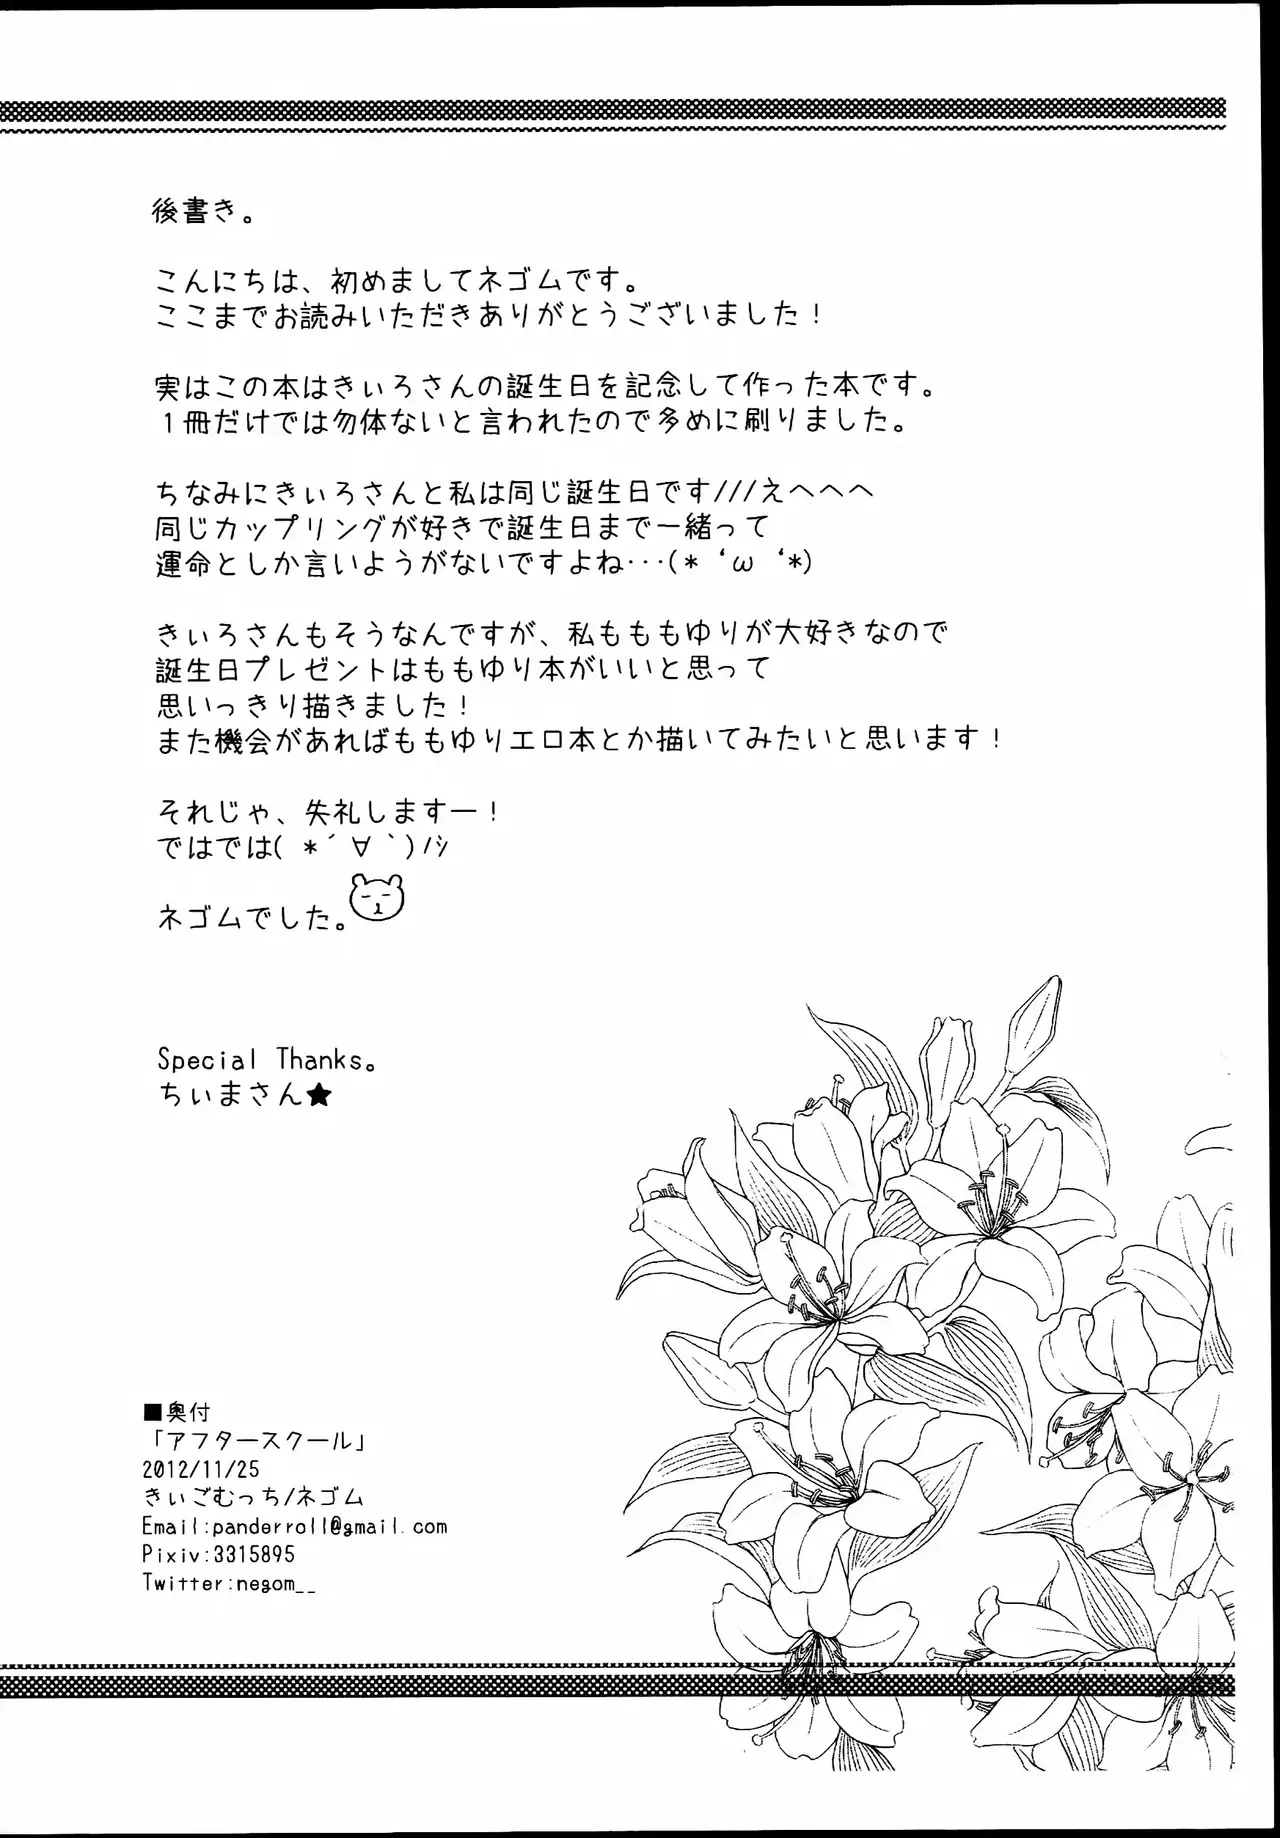 後書き。
こんにちは、初めましてネゴムです。
ここまでお読みいただきありがとうございました！
実はこの本はきぃろさんの誕生日を記念して作った本です。
１冊だけでは勿体ないと言われたので多めに刷りました。
ちなみにきぃろさんと私は同じ誕生日です///えへへへ
同じカップリングが好きで誕生日まで一緒って
運命としか言いようがないですよね･･･(*‘ω‘*)
きぃろさんもそうなんですが、私もももゆりが大好きなので
誕生日プレゼントはももゆり本がいいと思って
思いっきり描きました！
また機会があればももゆりエロ本とか描いてみたいと思います！
それじゃ、失礼しますー！
ではでは( *´∀｀)ﾉｼ
ネゴムでした。
Special Thanks。
ちぃまさん★
■奥付
「アフタースクール」
2012/11/25
きぃごむっち/ネゴム
Email:panderroll@gmail.com
Pixiv:3315895
Twitter:negom__